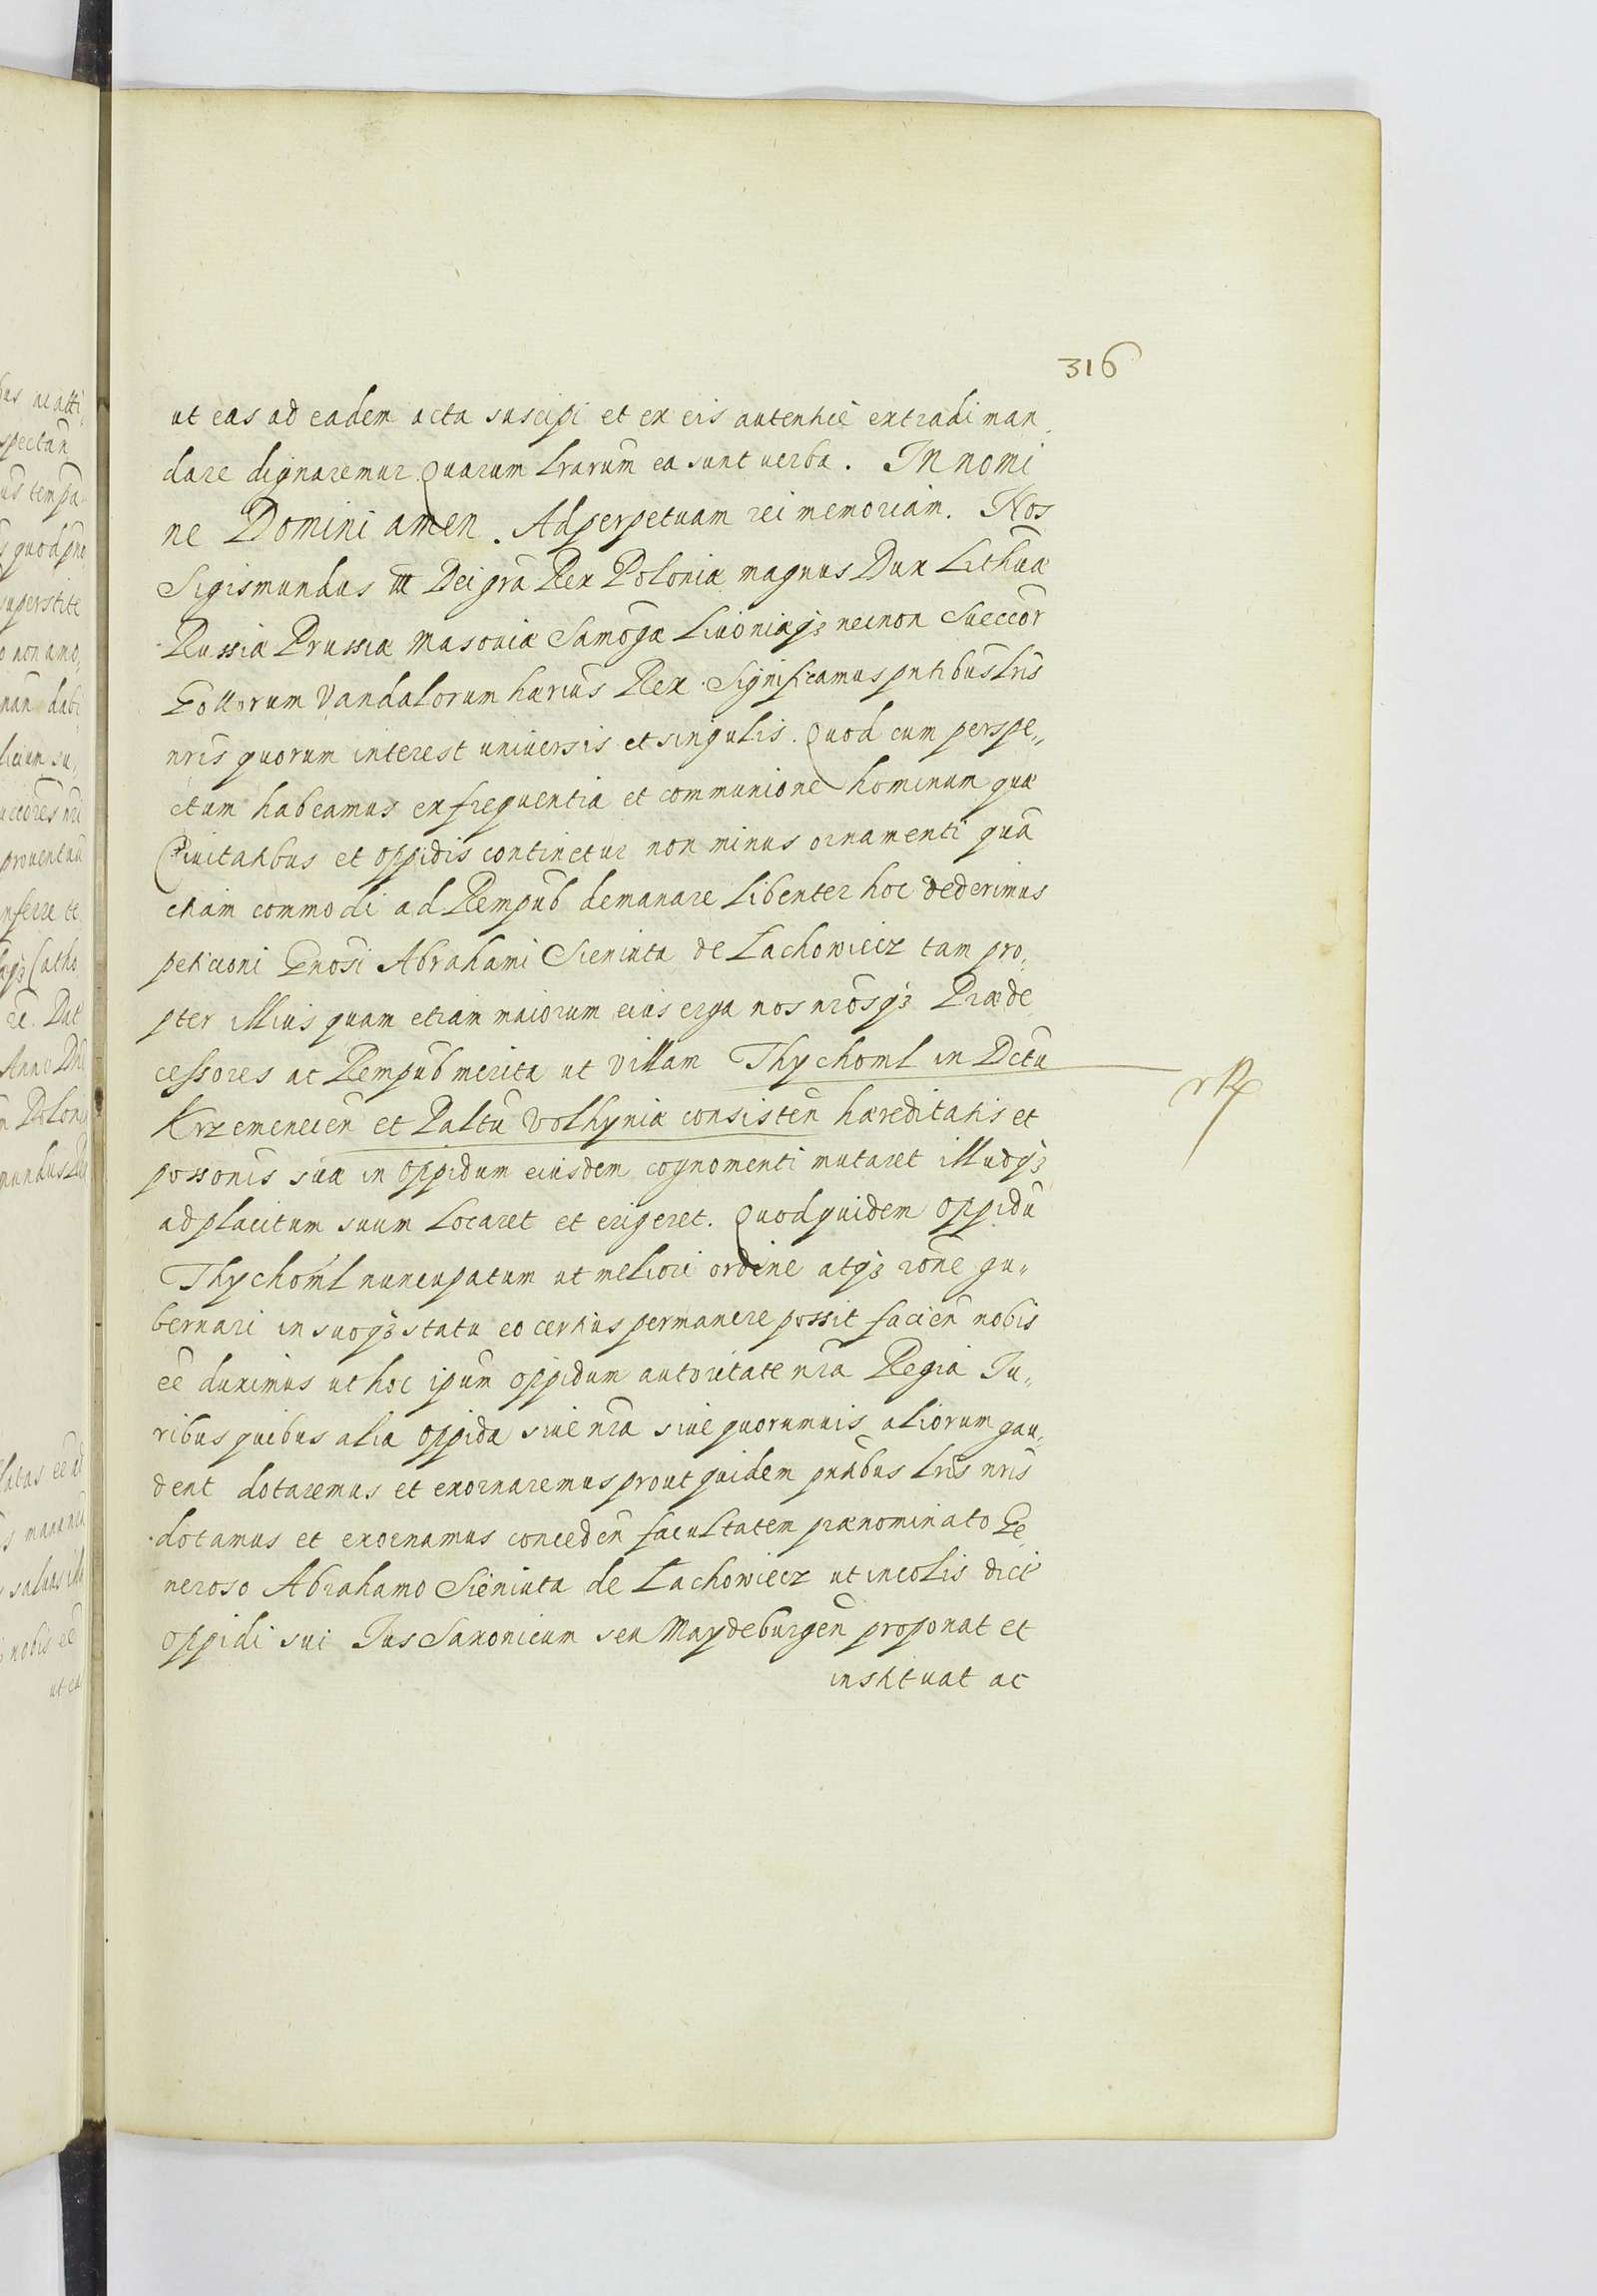 316
ut eas ad eadem acta suscipi et ex eis autenticē extradi man
dare dignaremur Quarum lrarum̄ ea sunt uerba. In nomi
ne Domini amen. Ad perpetuam rei memoriam. Nos
Sigismundus III Dei gr̄a Rex Poloniæ magnus Dux Lithuæ
Russiæ Prussiæ Masouiæ Samog̃æ Liuoniæqȝ necnon Sueccor̄
Gottorum Vandalorum hærius̄ Rex. Significamus pntibus̄ lris̄
nris̄ quorum interest uniuersis et singulis. Quod cum perspe„
ctum habeamus ex frequentia et communione hominum quæ
Ciuitatibus et oppidis continetur non minus ornamenti quā
etiam commodi ad Rempub̄ demanare libenter hoc dederimus
peticioni Gnosi Abrahami Sieniuta de Lachowiecz tam pro„
pter illius quam etiam maiorum eius erga nos nrōsqȝ Præde
cessores ac Rempub̄ merita ut villam Thychoml in Dctū
Krzemenecen̄ et Paltū Volhyniæ consisten̄ hæreditatis et
possonis suæ in oppidum eiusdem cognomenti mutaret illudqȝ
ad placitum suum locaret et erigeret. Quod quidem oppidū
Thychoml nuncupatum ut meliori ordine atqȝ rone gu„
bernari in suoqȝ statu eo certius permanere possit facien̄ nobis
eē duximus ut hoc ipum̄ oppidum autoritate nr̄a Regia Ju„
ribus quibus alia oppida siue nr̄a siue quorumuis aliorum gau„
dent dotaremus et exornaremus prout quidem pntibus̄ lris̄ nris̄
dotamus et exornamus conceden̄ facultatem prænominato Ge„
neroso Abrahamo Sieniuta de Lachowiecz ut incolis dicti
oppidi sui Jus Saxonicum seu Maydeburgen̄ proponat et
instituat ac